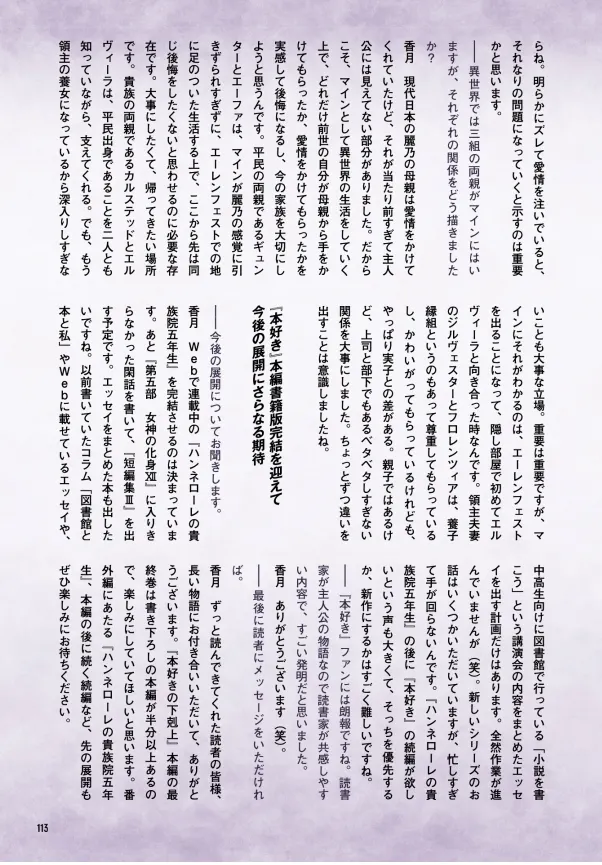 らね。明らかにズレて愛情を注いでいると、
それなりの問題になっていくと示すのは重要
かと思います。
――異世界では三組の両親がマインにはい
ますが、それぞれの関係をどう描きました
か？
香月　現代日本の麗乃の母親は愛情をかけて
くれていたけど、それが当たり前すぎて主人
公には見えてない部分がありました。だから
こそ、マインとして異世界の生活をしていく
上で、どれだけ前世の自分が母親から手をか
けてもらったか、愛情をかけてもらったかを
実感して後悔になるし、今の家族を大切にし
ようと思うんです。平民の両親であるギュン
ターとエーファは、マインが麗乃の感覚に引
きずられすぎずに、エーレンフェストでの地
に足のついた生活する上で、ここから先は同
じ後悔をしたくないと思わせるのに必要な存
在です。大事にしたくて、帰ってきたい場所
です。貴族の両親であるカルステッドとエル
ヴィーラは、平民出身であることを二人とも
知っていながら、支えてくれる。でも、もう
領主の養女になっているから深入りしすぎな
いことも大事な立場。重要は重要ですが、マ
インにそれがわかるのは、エーレンフェスト
を出ることになって、隠し部屋で初めてエル
ヴィーラと向き合った時なんです。領主夫妻
のジルヴェスターとフロレンツィアは、養子
縁組というのもあって尊重してもらっている
し、かわいがってもらっているけれども、
やっぱり実子との差がある。親子ではあるけ
ど、上司と部下でもあるベタベタしすぎない
関係を大事にしました。ちょっとずつ違いを
出すことは意識しましたね。
『本好き』本編書籍版完結を迎えて
今後の展開にさらなる期待
――今後の展開についてお聞きします。
香月　Ｗｅｂで連載中の『ハンネローレの貴
族院五年生』を完結させるのは決まっていま
す。あと『第五部　女神の化身Ⅻ』に入りき
らなかった閑話を書いて、『短編集Ⅲ』を出
す予定です。エッセイをまとめた本も出した
いですね。以前書いていたコラム「図書館と
本と私」やＷｅｂに載せているエッセイや、
中高生向けに図書館で行っている「小説を書
こう」という講演会の内容をまとめたエッセ
イを出す計画だけはあります。全然作業が進
んでいませんが（笑）。新しいシリーズのお
話はいくつかいただいていますが、忙しすぎ
て手が回らないんです。『ハンネローレの貴
族院五年生』の後に『本好き』の続編が欲し
いという声も大きくて、そっちを優先する
か、新作にするかはすごく難しいですね。
――『本好き』ファンには朗報ですね。読書
家が主人公の物語なので読書家が共感しやす
い内容で、すごい発明だと思いました。
香月　ありがとうございます（笑）。
――最後に読者にメッセージをいただけれ
ば。
香月　ずっと読んできてくれた読者の皆様、
長い物語にお付き合いいただいて、ありがと
うございます。『本好きの下剋上』本編の最
終巻は書き下ろしの本編が半分以上あるの
で、楽しみにしていてほしいと思います。番
外編にあたる『ハンネローレの貴族院五年
生』、本編の後に続く続編など、先の展開も
ぜひ楽しみにお待ちください。
113